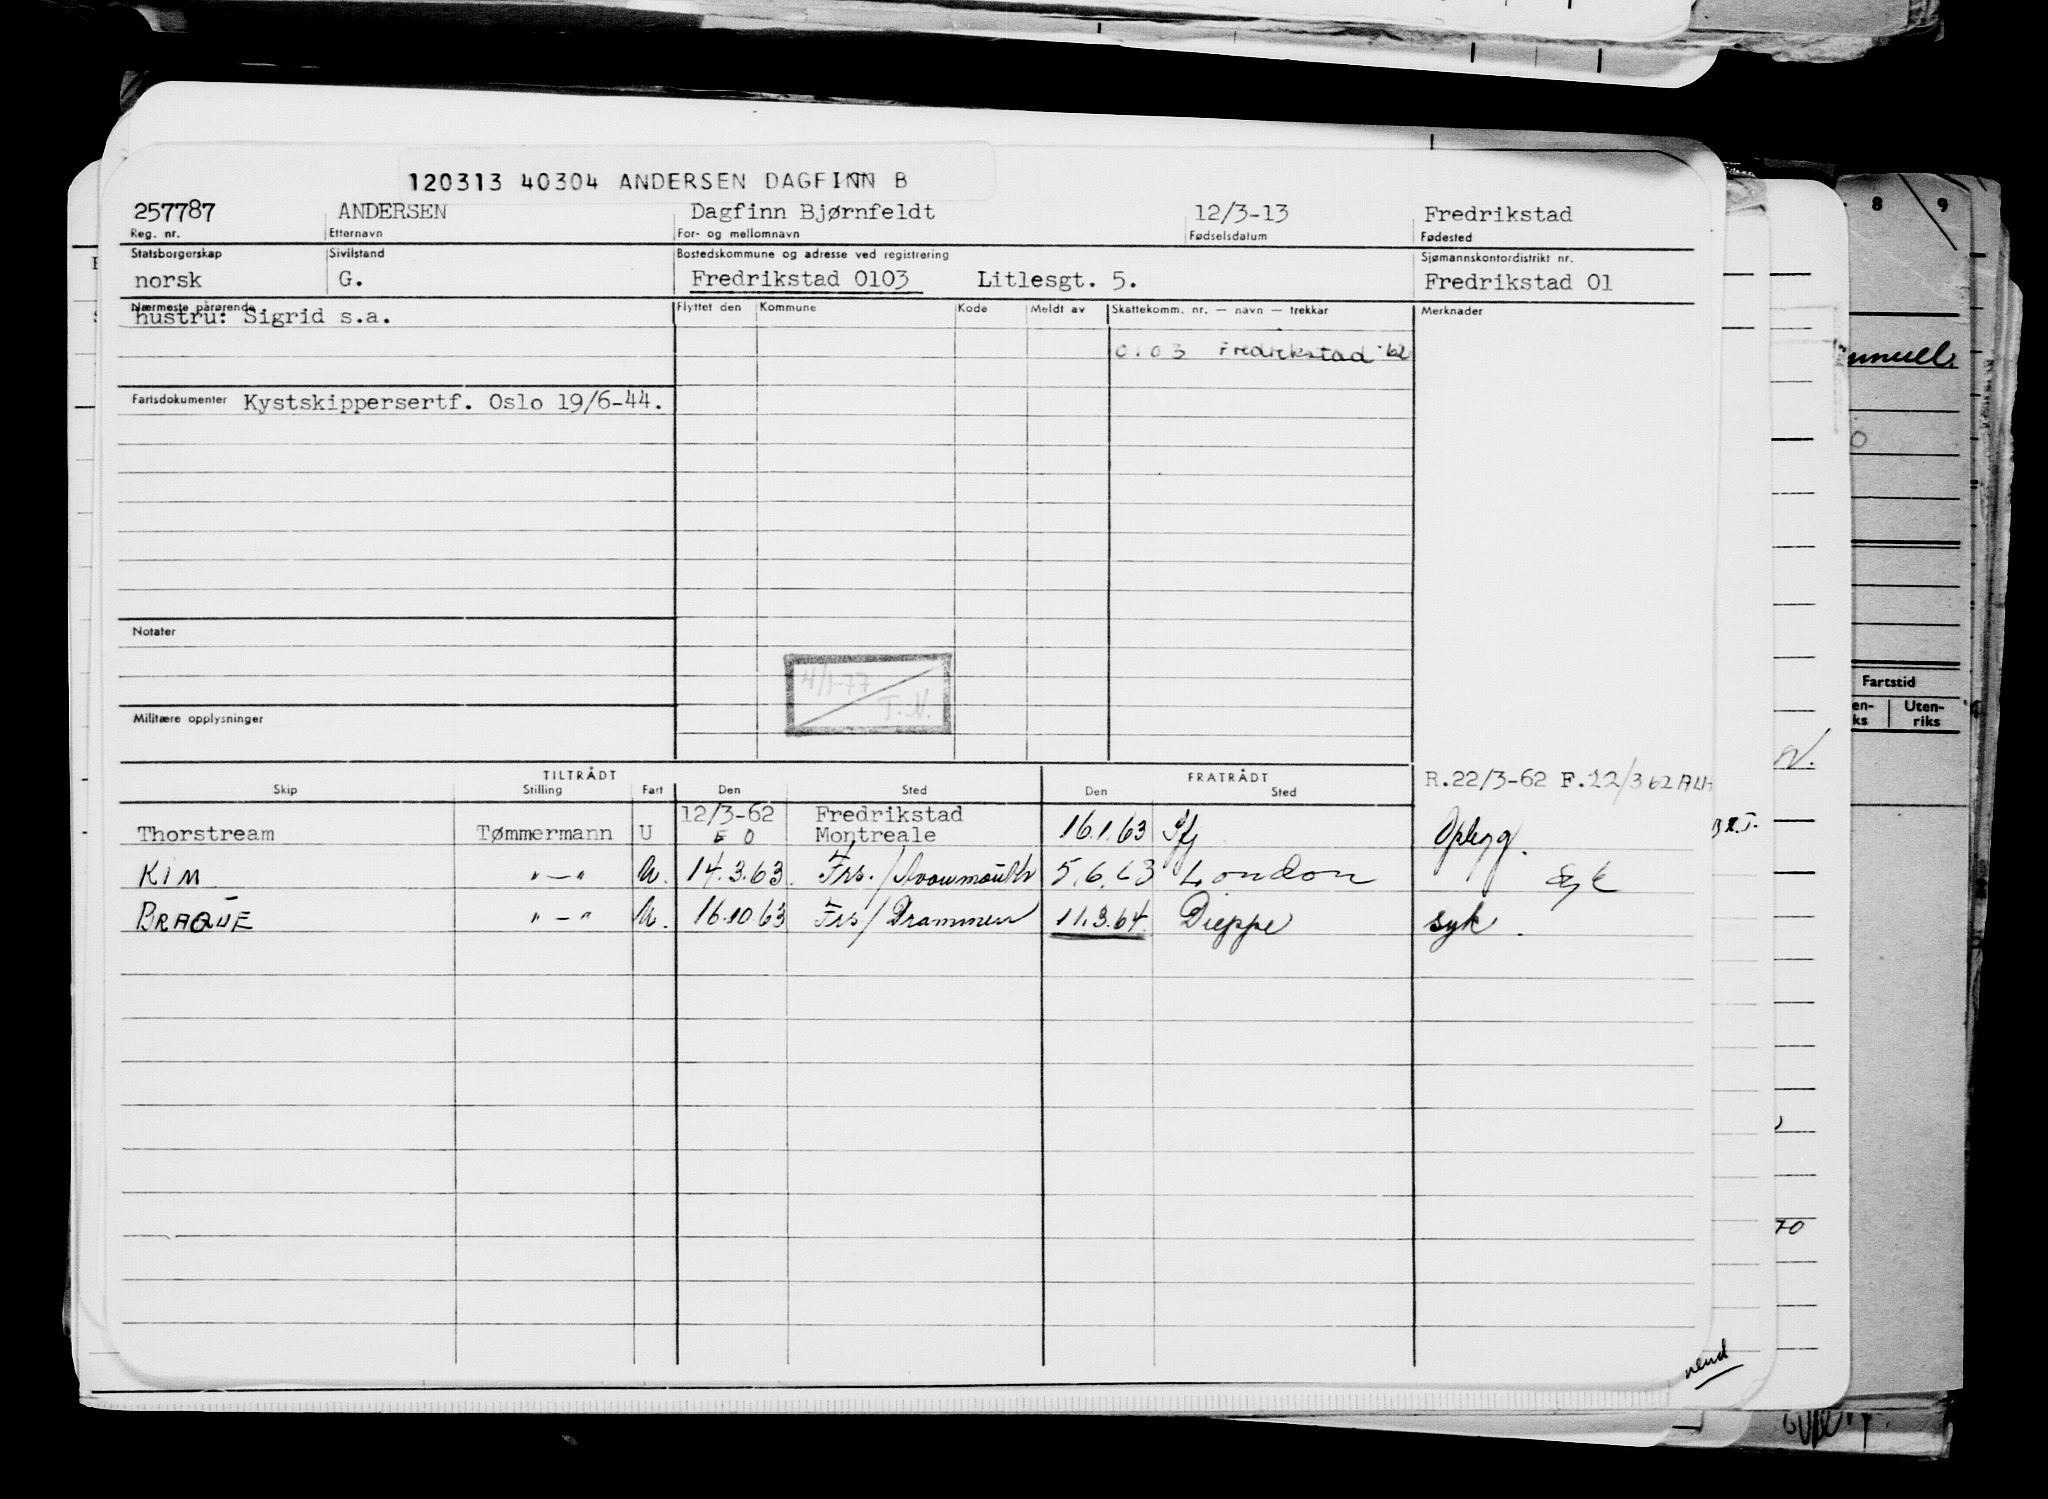 120313 40304 ANDERSEN DAGFINN B
257787 ANDERSEN Dagfinn Bjørnfeldt 12/3-13 Fredrikstad
Reg. nr. Etternavn For- og mellomnavn Fødselsdatum Fødested
Statsborgerskap Sivilstand Bostedskommune og adresse ved registrering Sjømannskontordistrikt nr.
norsk G. Fredrikstad 0103 Litlesgt. 5. Fredrikstad 01
Nærmeste pårørende Flyttet den Kommune Kode Meldt av Skattekomm. nr. — navn — trekkår Merknader
hustru: Sigrid s.a.
0103 Fredrikstad '62
Fartsdokumenter Kystskippersertf. Oslo 19/6-44.
Notater
4/1-77
T.N.
Militære opplysninger
TILTRÅDT FRATRÅDT R.22/3-62 F.22/3 62
Skip Stilling Fart Den Sted Den Sted
12/3-62 Fredrikstad
Thorstream Tømmermann U E O Montreale 16.1.63 Opplegg.
KIM "-" U. 14.3.63 Frs./Avonmouth 5.6.63 London Syk
BRAQUE "-" U. 16.10.63 Frs/Drammen 11.3.64. Dieppe syk.
vend
8 9
Fartstid
Uten-
riks
70